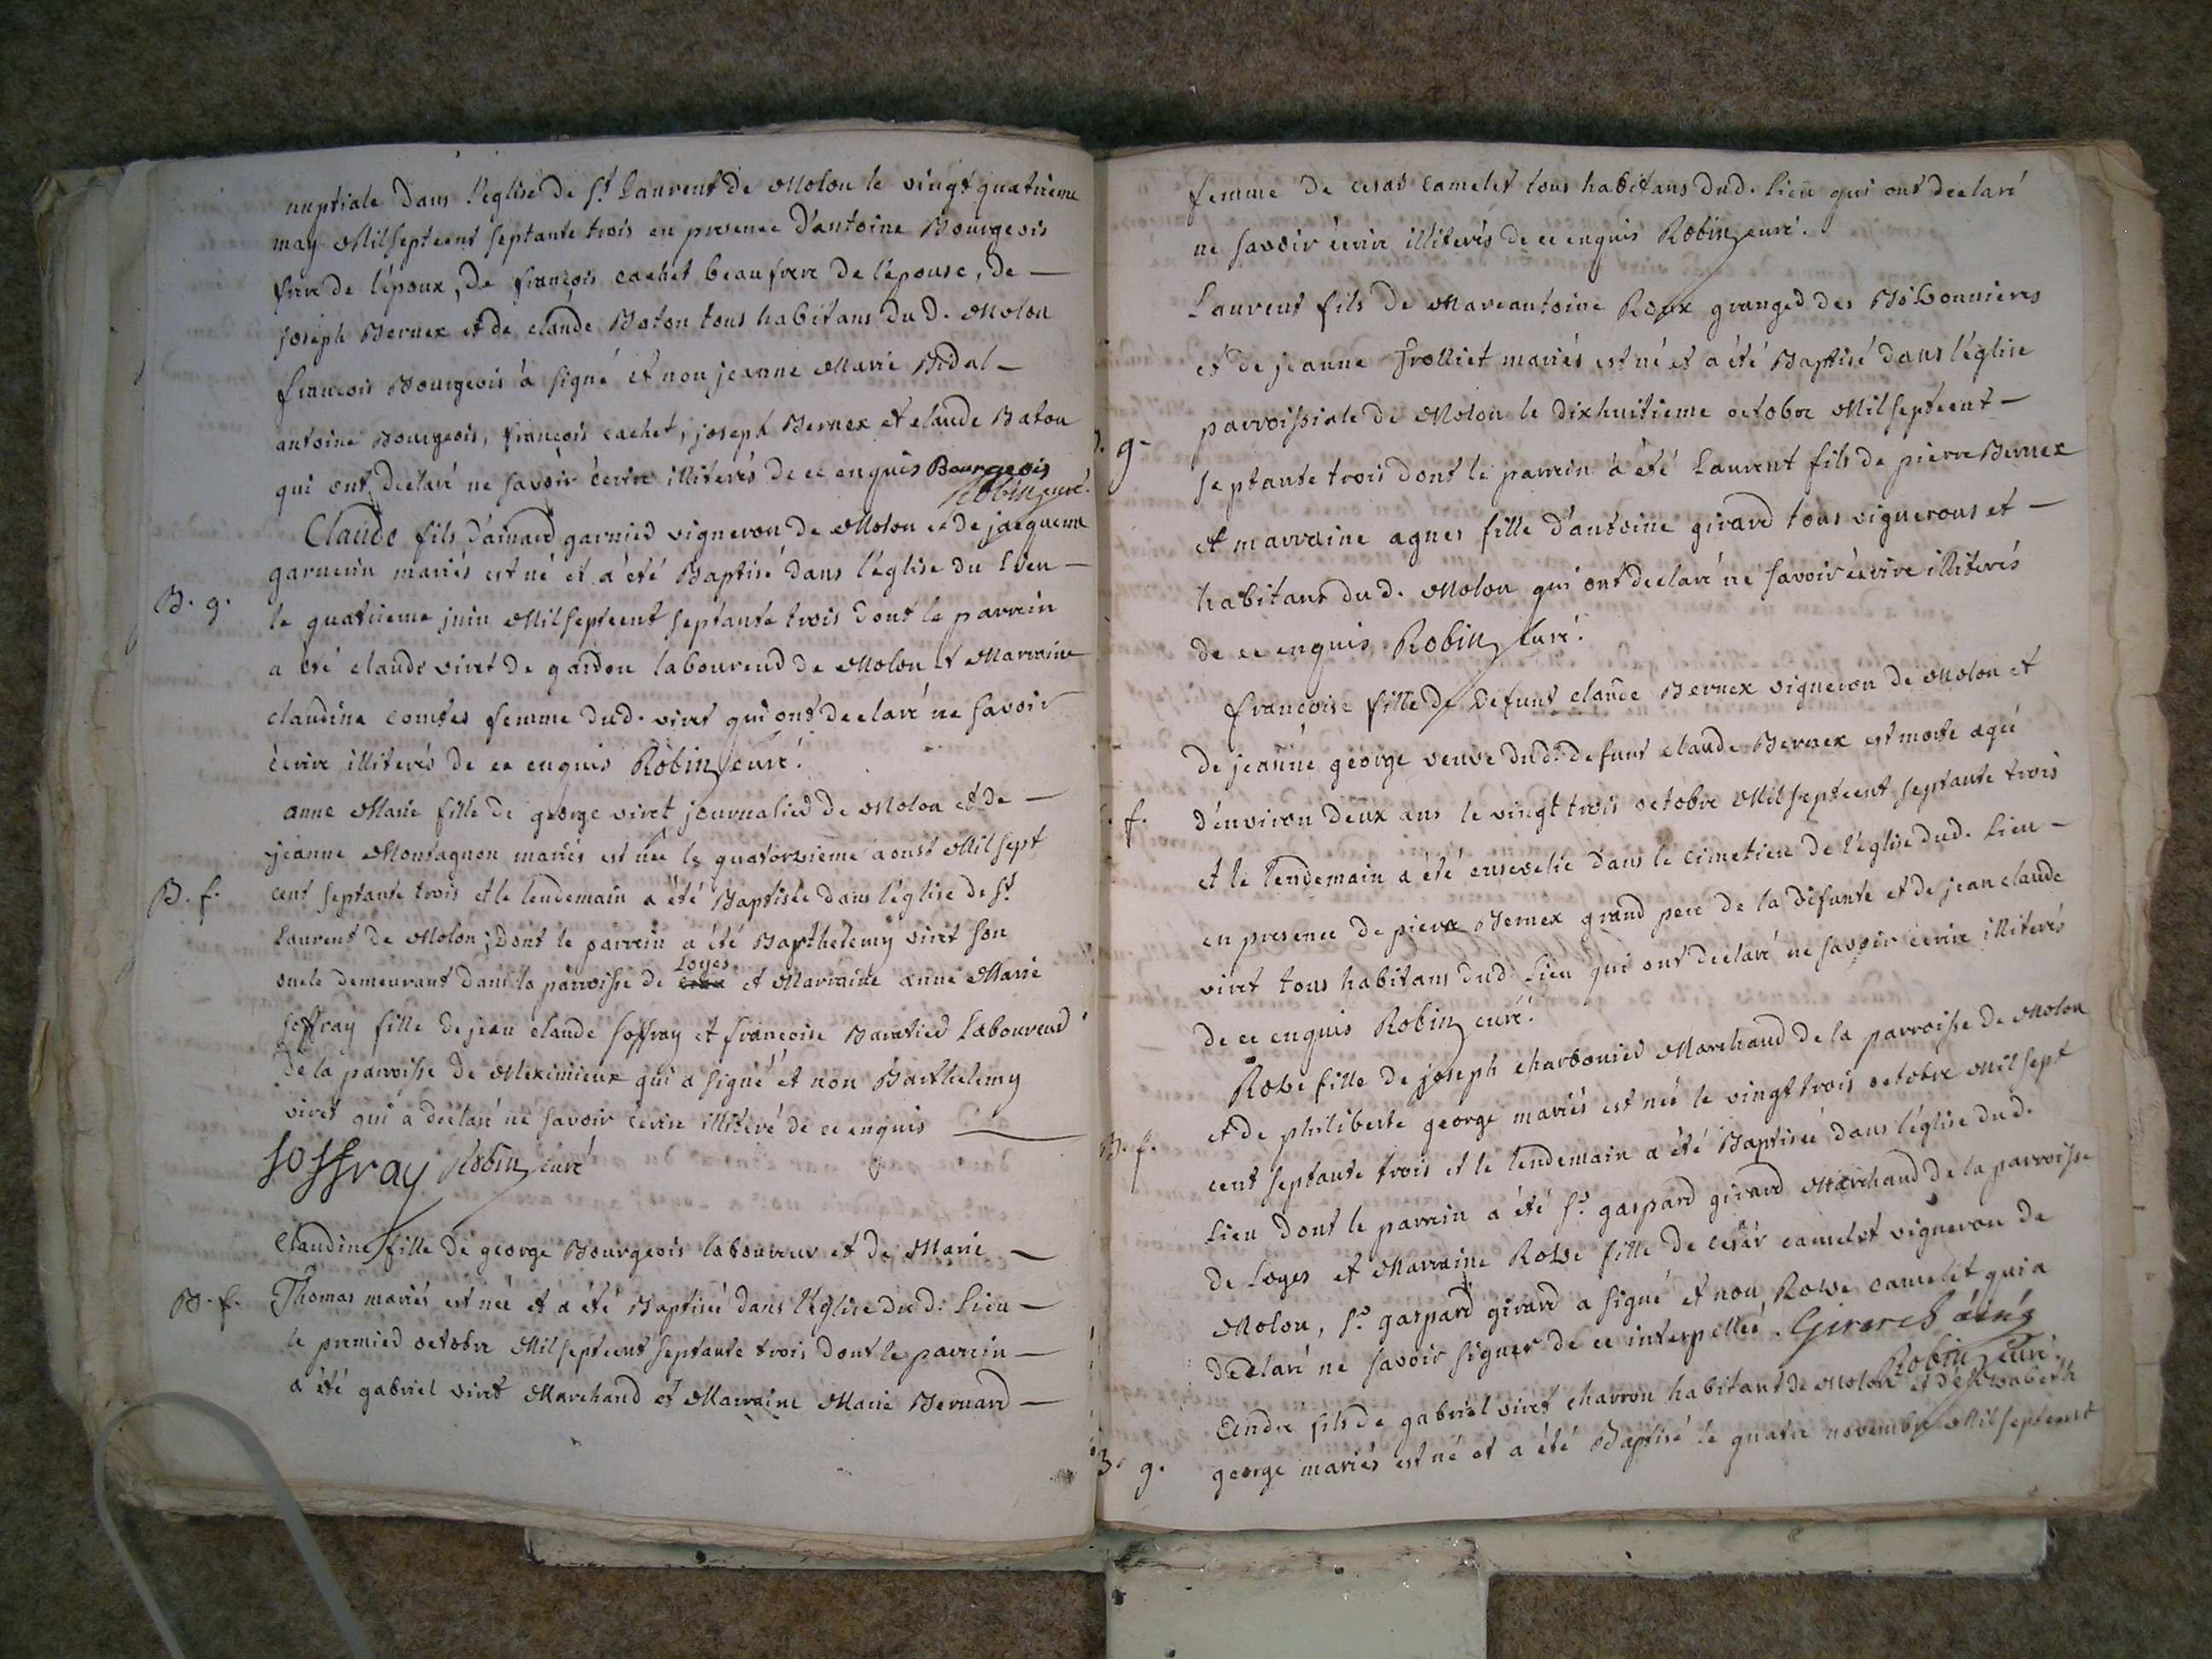 nuptiale dans l'églisé de St Laurent de Molon le vingt quatrieme
may Milseptcent septante trois en presence d'antoine Bourgeois
frere de l'époux, de françois cachet beaufrere de l'épouse, de —
joseph Bernex et de claude Baton tous habitans dud. Molon
françois Bourgeois a signé et non jeanne Marie Bidal —
antoine Bourgeois, françois cachet, joseph Bernex et claude Baton
qui ont declaré ne savoir écrire illiterés de ce enquis Bourgeois
Robin curé.
Claude fils d'ainard garnied vigneron de Molon et de jacquema
garnerin mariés est né et a été Baptisé dans l'église du lieu —
B. g. le quatrieme juin Milseptcent septante trois dont le parrein
a été claude viret de gaidon laboureud de Molon et Marraine
claudine comtes femme dud. viret qui ont declaré ne savoir
écrire illiterés de ce enquis Robin curé.
anne Marie fille de george viret journalied de Molon et de —
jeanne Montagnon mariés est née le quatorzieme aoust Mil sept
B. f. cent septante trois et le lendemain a été Baptisée dans l'église de St
Laurent de Molon; Dont le parrein a été Barthelemy viret son
Loyes
oncle demeurant dans la parroisse de et Marraine anne Marie
soffray fille de jean claude soffray et françoise Baratied Laboureud
de la parroisse de Meximieux qui a signé et non Barthelemy
viret qui a declaré ne savoir écrire illiteré de ce enquis —
soffray Robin curé
Claudine fille de george Bourgeois laboureur et de Marie —
B. f. Thomas mariés est née et a été Baptisée dans l'Eglise dud. Lieu —
le premied octobre Milseptcent septante trois dont le parrein —
a été gabriel viret Marchand et Marraine Marie Bernard —
femme de cesar camelet tous habitans dud. lieu qui ont declaré
ne savoir écrire illiterés de ce enquis Robin curé.
Laurent fils de Marcantoine Roux granged des Bibonnieres
et de jeanne frolliet mariés est né et a été Baptisé dans l'église
parroissiale de Molon le dixhuitieme octobre Milseptcent —
g. septante trois dont le parrein a été Laurent fils de pierre Bernex
et marraine agnes fille d'antoine girard tous vignerons et —
habitans dud. Molon qui ont declaré ne savoir écrire illiterés
de ce enquis Robin curé.
françoise fille de defunt claude Bernex vigneron de Molon et
de jeanne george veuve dud. defunt claude Bernex est morte agée
f. d'environ deux ans le vingt trois octobre Milseptcent septante trois
et le lendemain a été ensevelie dans le cimetiere de l'église dud. lieu —
en presence de pierre Bernex grand pere de la défunte et de jean claude
viret tous habitans dud. Lieu qui ont declaré ne savoir écrire illiterés
de ce enquis Robin curé.
Rose fille de joseph charbonied Marchand de la parroisse de Molon
et de philiberte george mariés est née le vingt trois octobre Mil sept
B. f. cent septante trois et le lendemain a été Baptisée dans l'église dud.
Lieu dont le parrein a été Sr. gaspard girard Marchand de la parroisse
de Loyes et Marraine Rose fille de cesar camelet vigneron de
Molon, Sr. gaspard girard a signé et non Rose camelet qui a
declaré ne savoir signer de ce interpellée. Girard áiné
Robin curé.
André fils de gabriel viret charron habitant de Molon et d'Elisabeth
B. g. george mariés est né et a été Baptisé le quatre novembre Milseptcent